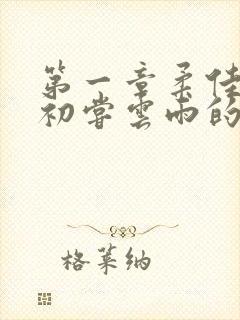 第一章柔佳
初尝云雨的
格莱纳